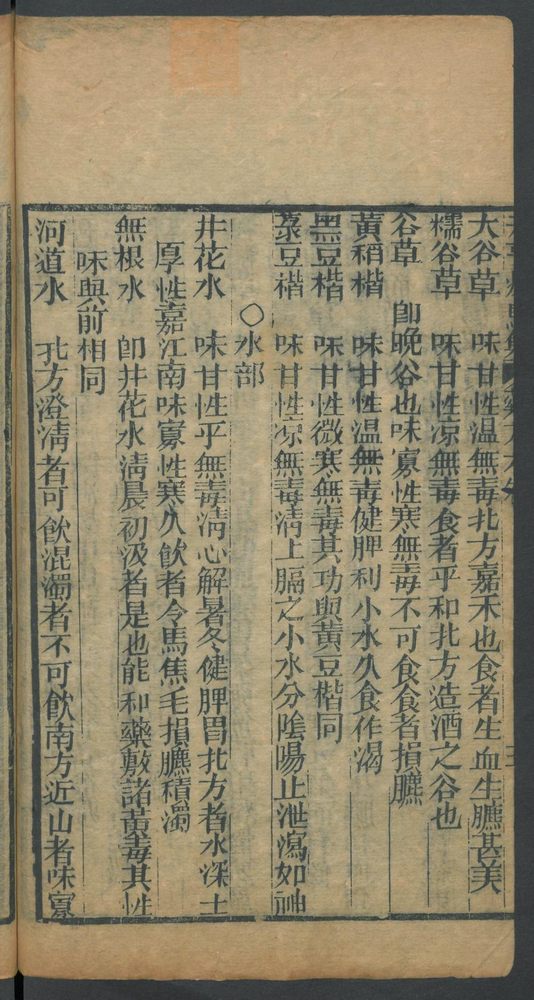 大谷草　味甘性温無毒北方嘉禾也食者生血生臕甚美
糯谷草　味甘性凉無毒食者平和北方造酒之谷也
谷草　卽晚谷也味寡性寒無毒不可食食者損臕
黄稍楷　味甘性温無毒健脾利小水久食作渴
黑豆楷　味甘性微寒無毒其功與黄豆楷同
菉豆楷　味甘性凉無毒清上膈之小水分陰陽止泄瀉如神
○水部
井花水　味甘性平無毒清心解暑冬健脾胃北方者水深土
厚性嘉江南味寡性寒久飲者令馬焦毛損臕積濁
無根水　卽井花水清晨初汲者是也能和藥敷諸黄毒其性
味與前相同
河道水　北方澄清者可飲混濁者不可飲南方近山者味寡